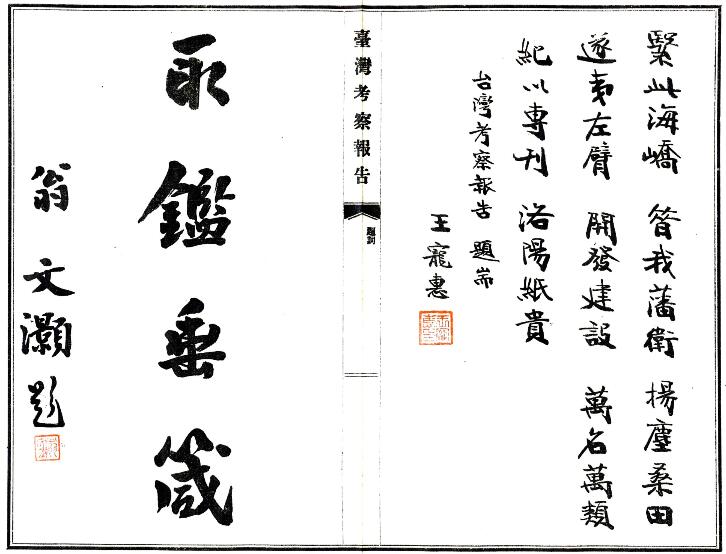 繄此海嶠 昔我藩衛 揚塵桑田
遂夷左臂 開發建設 萬名萬類
紀以專刊 洛陽紙貴
台灣考察報告 題耑
王寵惠
臺灣考察報告
題詞
取鑑垂箴
翁文灝題